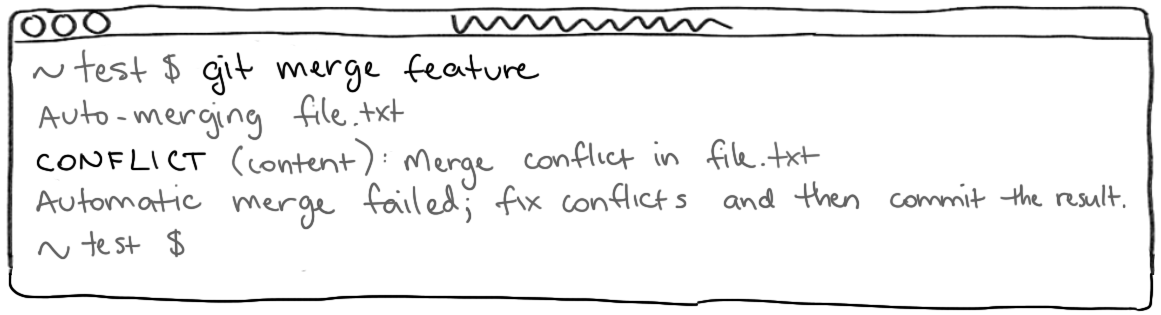 ~ test $ git merge feature
Auto-merging file.txt
CONFLICT (content): Merge conflict in file.txt
Automatic merge failed; fix conflicts and then commit the result.
~ test $